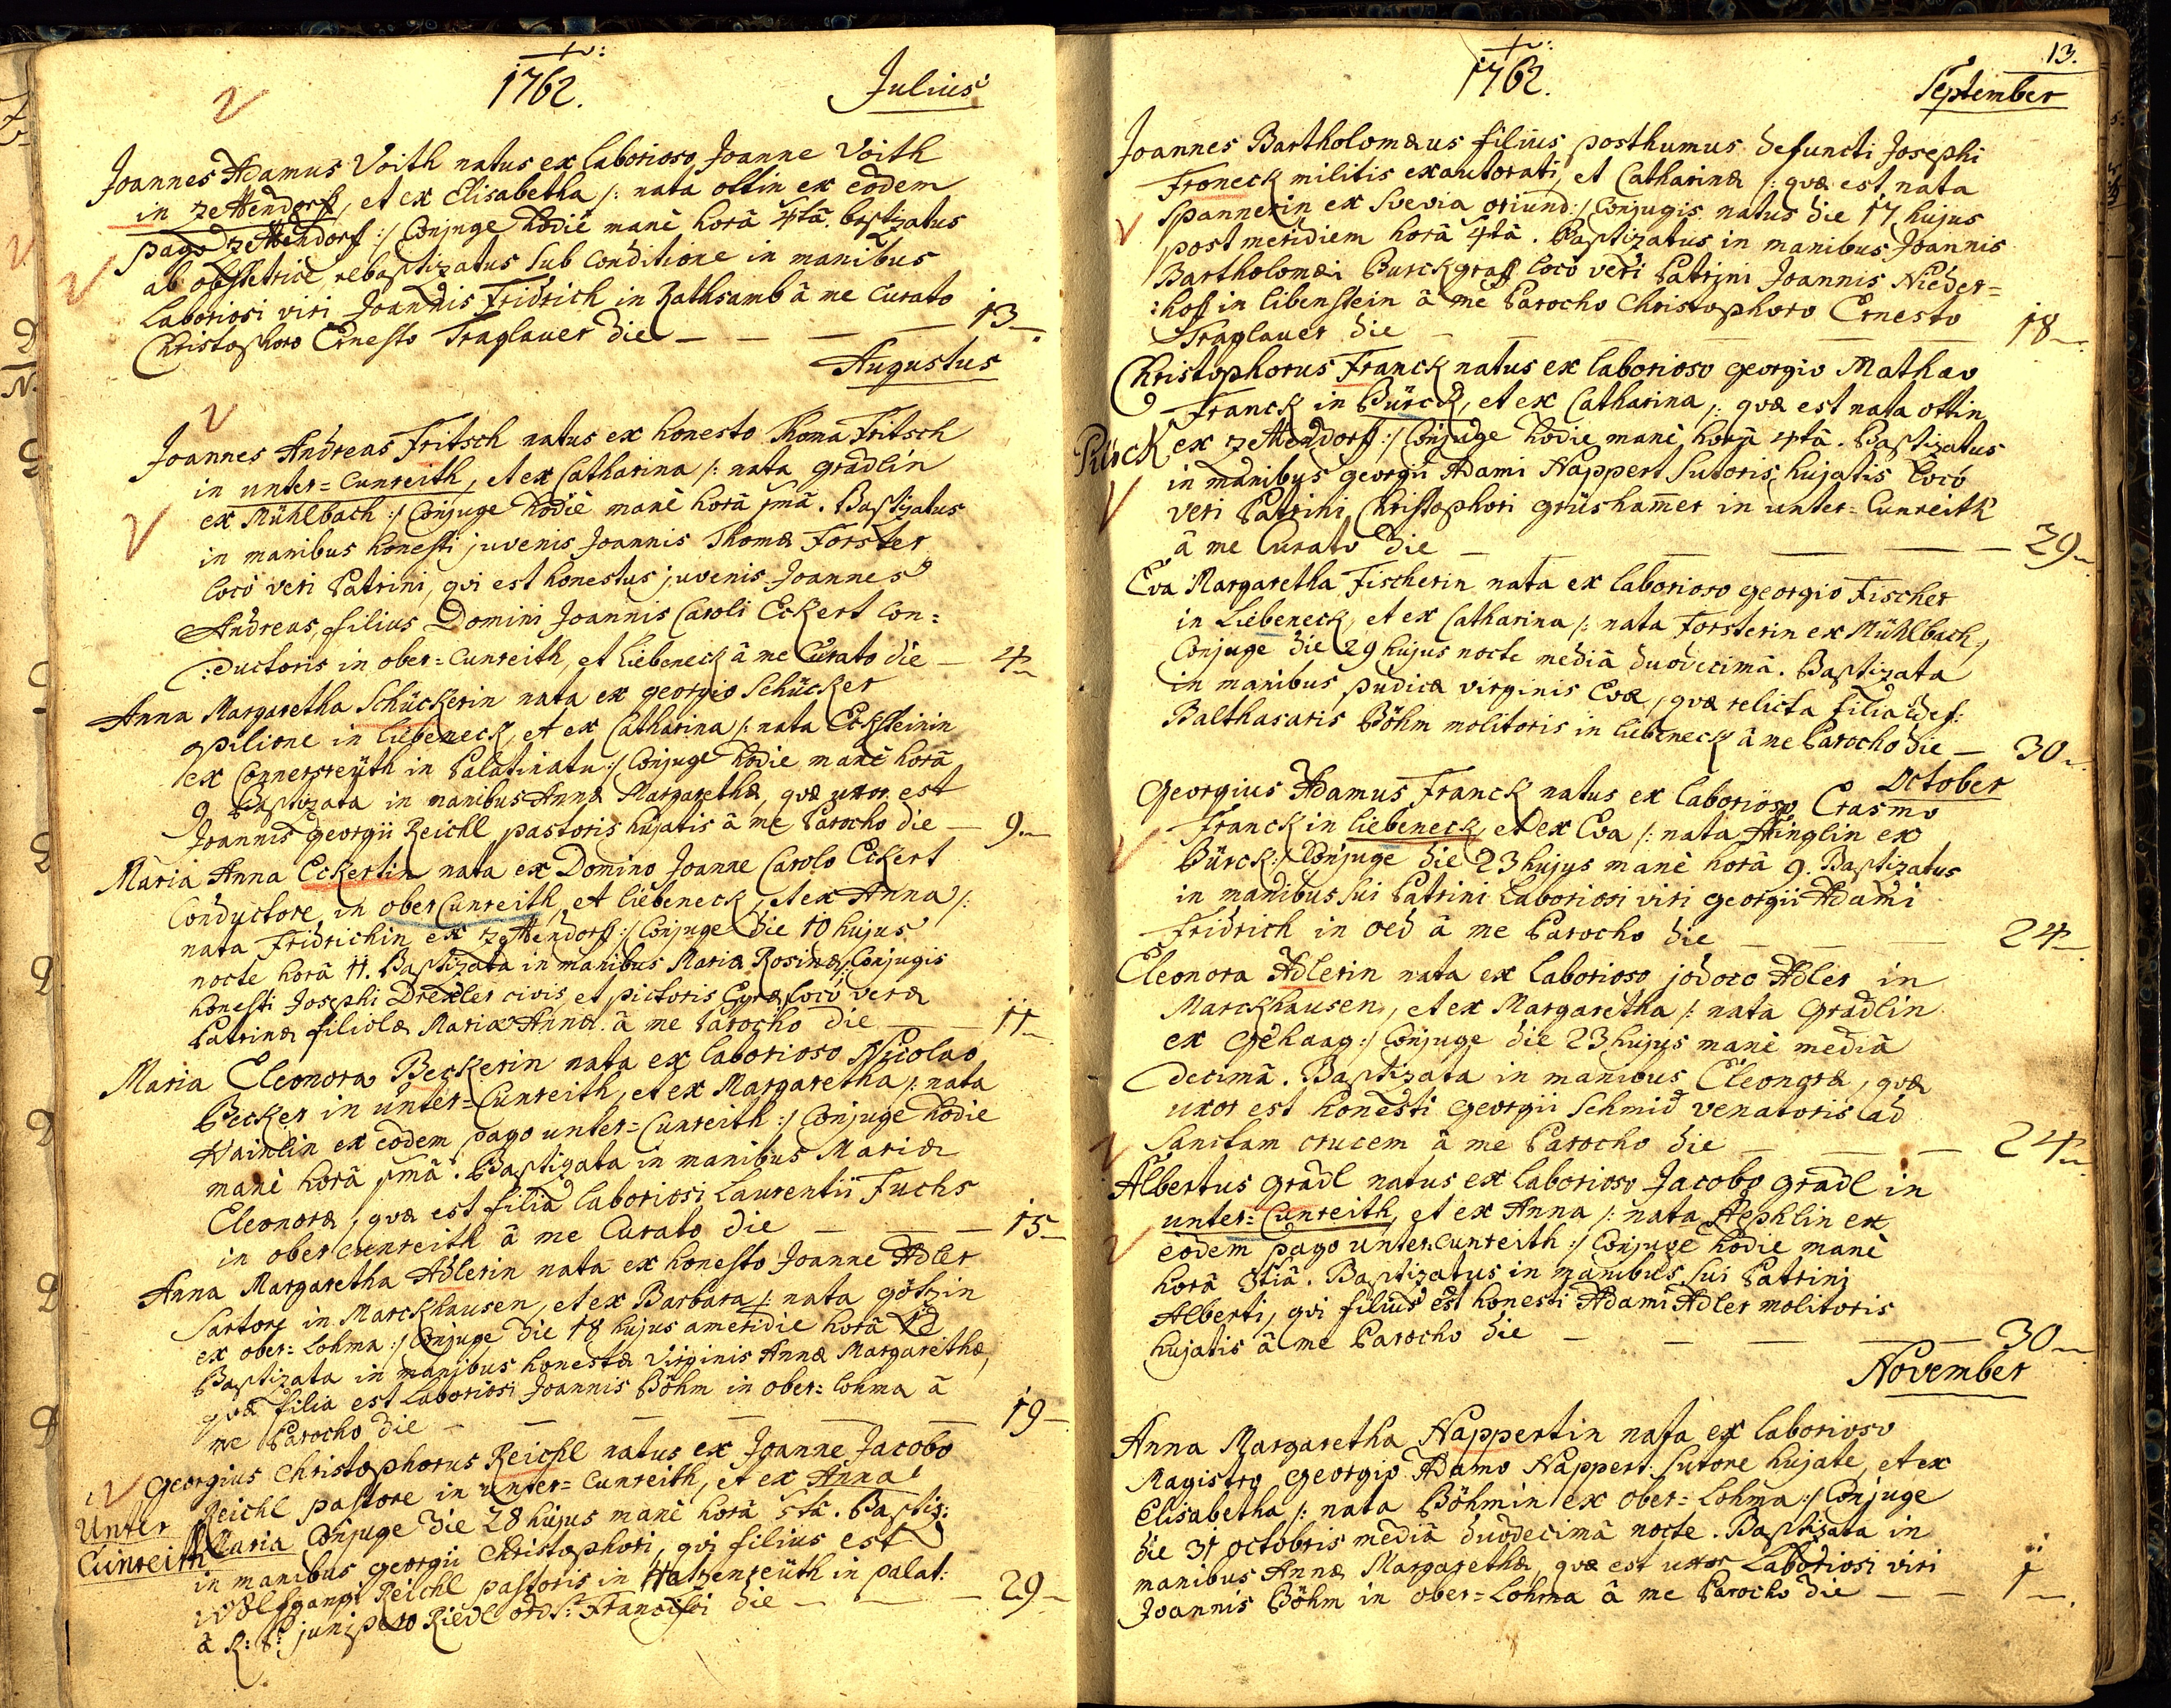 1762.
Julius
Joannes Adamus Voith natus ex laborioso Joanne Voith
in Zettendorff, et ex Elisabetha /: nata ottin ex eodem
pago Zettendorf :/ Conjuge hodie mane hora 4ta. baptizatus
ab obstetrice rebaptizatus sub conditione in manibus
laboriosi viri Joannis Fridrich in Rathsamb â me Curato
Christophoro Ernesto Traglauer die — — — — 13
Augustus
Joannes Andreas Fritsch natus ex honesto Thoma Fritsch
in unter=Cunreith, et ex Catharina /: nata gradlin
ex Mühlbach :/ Conjuge hodie mane horâ 1mâ. Baptizatus
in manibus honesti juvenis Joannis Thomæ Forster
loco veri Patrini, qvi est honestus juvenis Joannes
Andreas, filius Domini Joannis Caroli Eckert Con=
:ductoris in ober=Cunreith, et Liebeneck â me Curato die — 4
Anna Margaretha Schückerin nata ex georgio Schücker
opilione in liebeneck, et ex Catharina /: nata Ecksteinin
ex Connersreüth in Palatinatu :/ Conjuge hodie mane horâ
9 Baptizata in manibus Annæ Margarethæ, qvæ uxor est
Joannis georgii Reichl pastoris hujatis â me Parocho die — 9
Maria Anna Eckertin nata ex Domino Joanne Carolo Eckert
Conductore in ober Cunreith, et liebeneck, et ex Anna /:
nata Fridrichin ex Zettendorff :/ Conjuge die 10 hujus
nocte horâ 11. Baptizata in manibus Mariæ Rosinæ, Conjugis
honesti Josephi Drexler civis et pictoris Egræ loco veræ
Patrinæ filiolæ Mariæ Annæ â me Parocho die — 11
Maria Eleonora Beckerin nata ex laborioso Nicolao
Becker in unter=Cunreith, et ex Margaretha /: nata
Hainlin ex eodem pago unter=Cunreith :/ Conjuge hodie
mane horâ 1mâ. Baptizata in manibus Mariæ
Eleonoræ, qvæ est filia laboriosi Laurentii Fuchs
in ober cunreith â me Curato die — — — 15
Anna Margaretha Adlerin nata ex honesto Joanne Adler
Sartore in Marckhausen, et ex Barbara /: nata götzin
ex ober=Lohma :/ Conjuge die 18 hujus ameridie horâ
Baptizata in manibus honestæ Virginis Annæ Margarethæ,
qvæ filia est laboriosi Joannis Böhm in ober=lohma â
me Parocho die — — — — — 19
georgius Christophorus Reichl natus ex Joanne Jacobo
Reichl pastore in unter=Cunreith, et ex Anna
Unter Cunreith
Maria Conjuge die 28 hujus mane horâ 5ta. Baptiz:
in manibus georgii Christophori, qvi filius est
wolfgangi Reichl pastoris in Hatzenreüth in palat:
â R: P: junipero Riedl ord: S: Francisci die — — 29
13.
1762.
September
Joannes Bartholomæus filius posthumus defuncti Josephi
Froneck militis exautorati, et Catharinæ /: qvæ est nata
Spannerin ex Svevia oriund :/ Conjugis natus die 17 hujus
post meridiem horâ 4tâ. Baptizatus in manibus Joannis
Bartholomæi Burckgraff loco veri Patrini Joannis Nieder=
:hoff in libenstein â me Parocho Christophoro Ernesto
Traglauer die — — — — — 18
Christophorus Franck natus ex laborioso georgio Mathæo
Franck in Bürck, et ex Catharina /: qvæ est nata ottin
Pürck
ex Zettendorff :/ Conjuge hodie mane horâ 4tâ. Baptizatus
in manibus georgii Adami Nappert Sutoris hujatis loco
veri Patrini Christophori grüshamer in unter=Cunreith
â me Curato die — — — — — 29
Eva Margaretha Fischerin nata ex laborioso georgio Fischer
in Liebeneck, et ex Catharina /: nata Forsterin ex Mühlbach :/
Conjuge die 29 hujus nocte mediâ duodecimâ. Baptizata
in manibus pudicæ virginis Evæ, qvæ relicta filia def:
Balthasaris Böhm molitoris in liebeneck â me Parocho die — 30
October
Georgius Adamus Franck natus ex laborioso Erasmo
Franck in liebeneck, et ex Eva /: nata Hinglin ex
Bürck :/ Conjuge die 23 hujus mane horâ 9. Baptizatus
in manibus sui Patrini laboriosi viri georgii Adami
Fridrich in oed â me Parocho die — — 24
Eleonora Adlerin nata ex laborioso jodoco Adler in
Marckhausen, et ex Margaretha /: nata gradlin
ex gehaag :/ Conjuge die 23 hujus mane mediâ
decimâ. Baptizata in manibus Eleonoræ, qvæ
uxor est honesti georgii Schmid venatoris ad
Sanctam crucem â me Parocho die — — — 24
Albertus gradl natus ex laborioso Jacobo gradl in
unter=Cunreith, et ex Anna /: nata Hephlin ex
eodem pago unter cunreith :/ Conjuge hodie mane
horâ 3tiâ. Baptizatus in manibus sui Patrini
Alberti, qvi filius est honesti Adami Adler molitoris
hujatis â me Parocho die — — — — 30
November
Anna Margaretha Nappertin nata ex laborioso
Magistro georgio Adamo Nappert Sutore hujate, et ex
Elisabetha /: nata Böhmin ex ober=Lohma :/ Conjuge
die 31 octobris mediâ duodecimâ nocte. Baptizata in
manibus Annæ Margarethæ, qvæ est uxor laboriosi viri
Joannis Böhm in ober=Lohma â me Parocho die — — 1